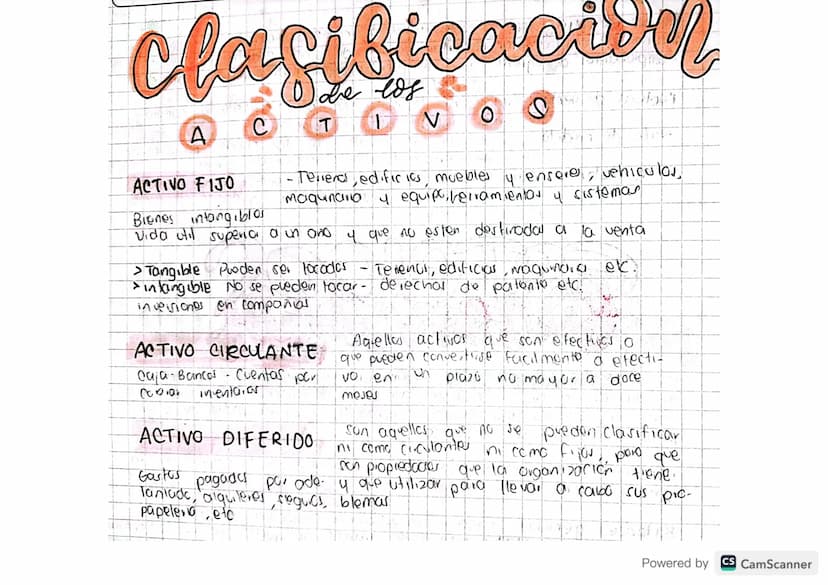 Clasificación
de los
ACTIVOS
ACTIVO FIJO - Terreros, edificios, muebles y enseres, vehiculos,
maquinaria y equipo, herramientas y sistemas
Bienes intangibles
vida util superia a un ano y que no esten destinadas a la venta
> Tangible Pueden ser tocados - Terrenos, edificios, maquinaria etc.
> intangible No se pueden tocar - derechos de patente etc.
inversiones en compañias
ACTIVO CIRCULANTE Aquellos activos que son efectivos o
que pueden convertirse facilmente a efecti-
Caja-Bancos - Cuentas por vo en un plazo no mayor a doce
cobrar inventarios meses
ACTIVO DIFERIDO son aquellos que no se pueden clasificar
ni como circulantes ni como fijos, pero que
son propiedades que la organización tiene
Gastos pagados por ade- y que utilizar para llevar a cabo sus pro-
lantado, alquileres, seguros, blemas
papeleria, etc
Powered by CS CamScanner